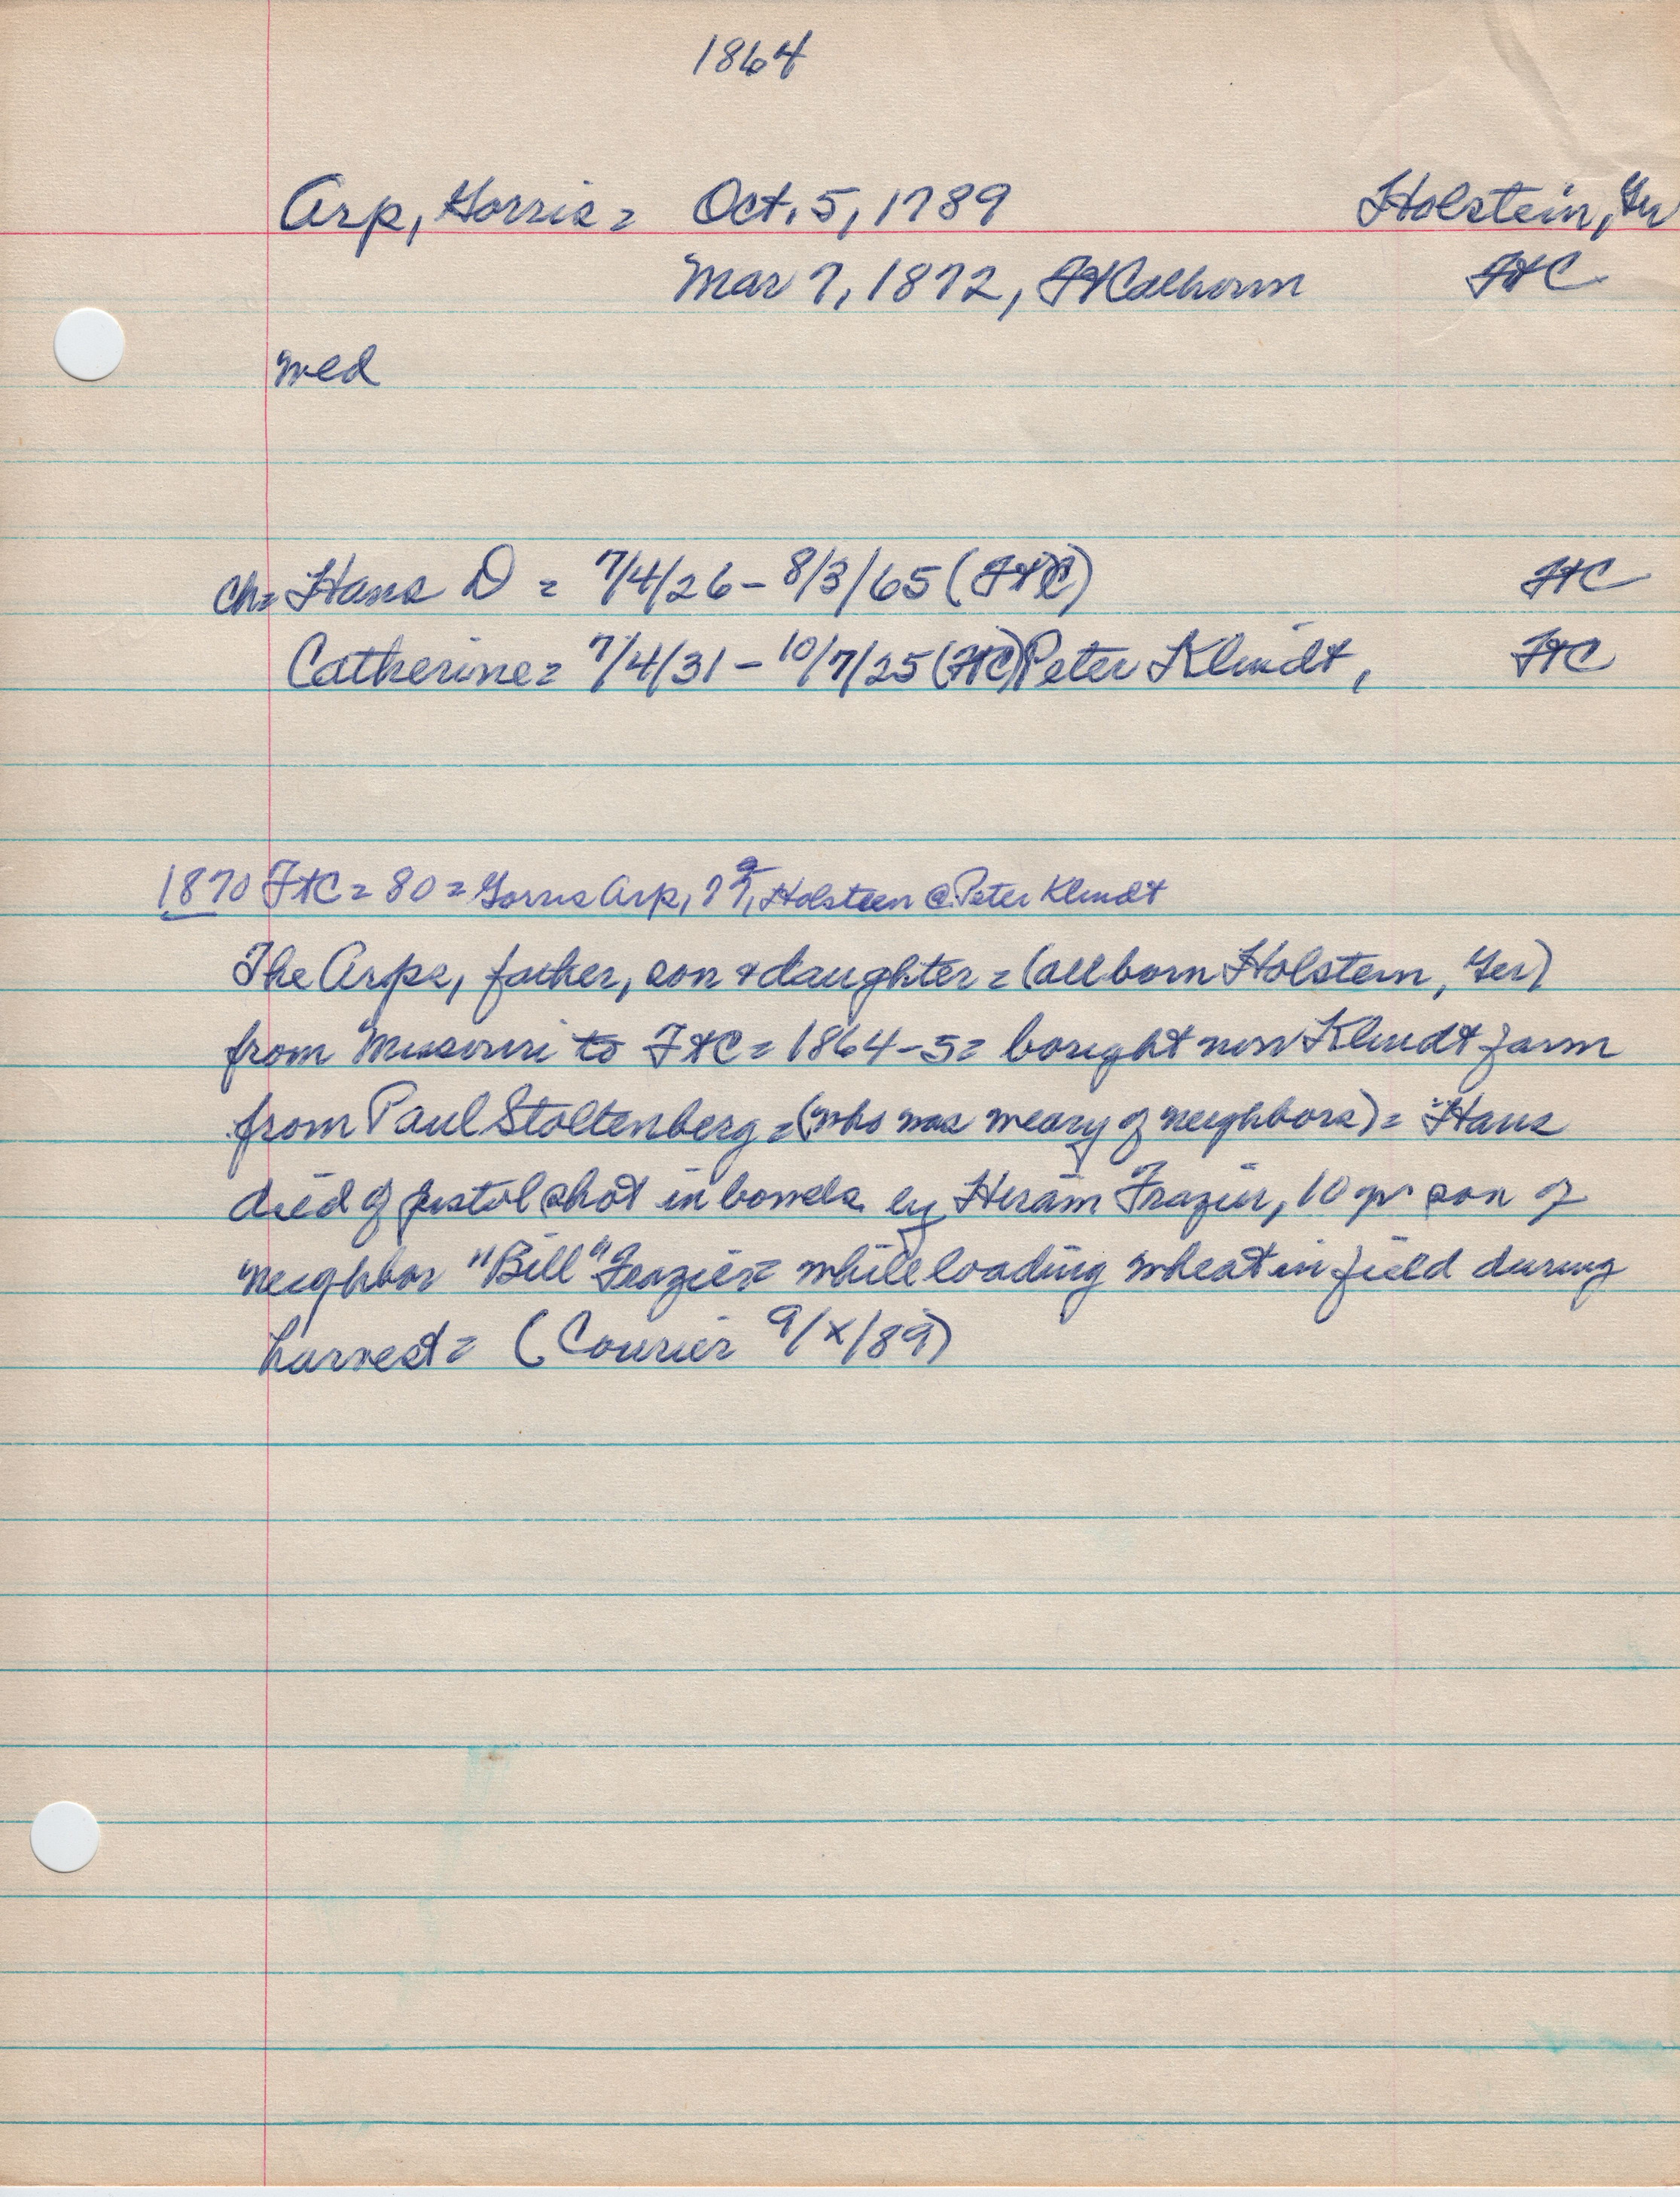 1864
Arp, Gorris = Oct. 5, 1789 Holstein, Ger
Mar 7, 1872, Ft Calhoun FtC
wed
ch = Hans D = 7/4/26 - 8/3/65 (FtC) FtC
Catherine = 7/4/31 - 10/7/25 (FtC) Peter Klindt, FtC
1870 FtC = 80 = Gorris Arp, Holstein @ Peter Klindt
The Arps, father, son & daughter = (all born Holstein, Ger)
from Missouri to FtC = 1864-5 = bought now Klindt farm
from Paul Stoltenberg = (who was weary of neighbors) = Hans
died of pistol shot in bowels by Hiram Frazier, 10 yr son of
neighbor "Bill" Frazier = while loading wheat in field during
harvest = (Courier 9/x/89)